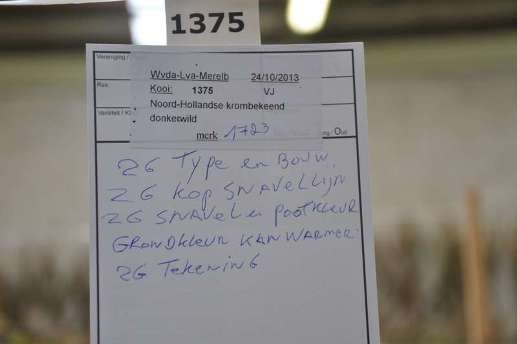 1375
Vereniging
Wvda-Lva-Merelb 24/10/2013
Ras:
Kooi: 1375 VJ
Noord-Hollandse krombekeend
donkerwild
merk 1723
Oud
ZG TYPE en BOUW,
ZG KOP SNAVELLIJN
ZG SNAVEL en POOTKLEUR
GRONDKLEUR KAN WARMER
ZG TEKENING